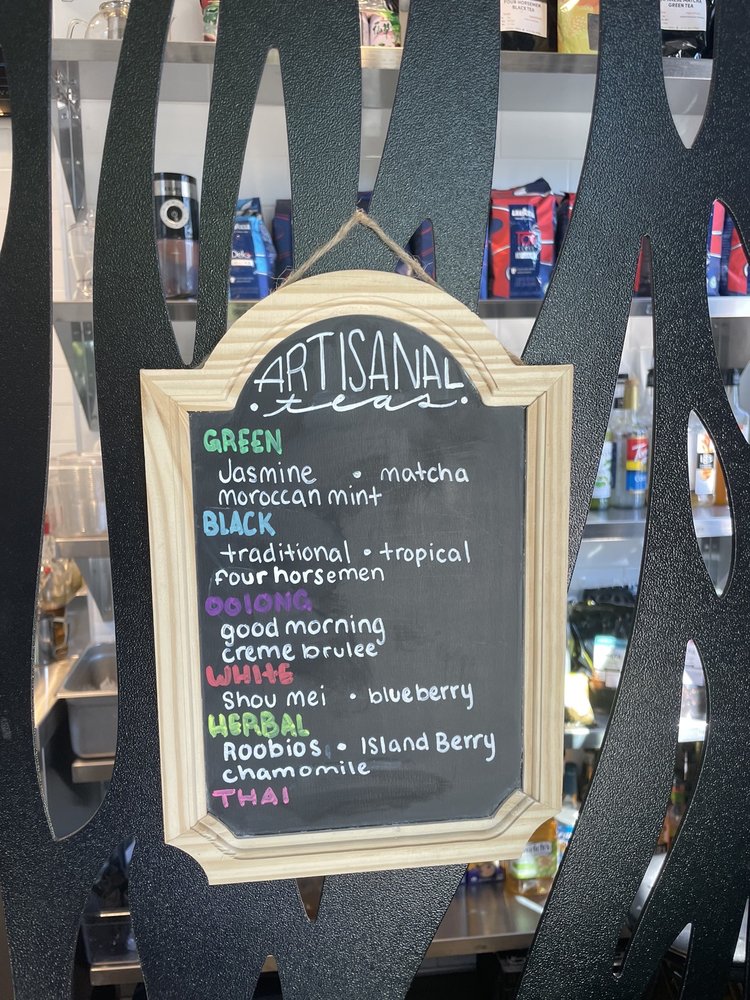 FOUR HORSEMEN
BLACK TEA
MATCHA
GREEN TEA
LAVAZZA
ARTISANAL
• teas •
GREEN
Jasmine • matcha
moroccan mint
BLACK
traditional • tropical
four horsemen
OOlONG
good morning
creme brulee
WHItE
Shou mei • blueberry
HERBAL
Roobios • Island Berry
chamomile
THAI